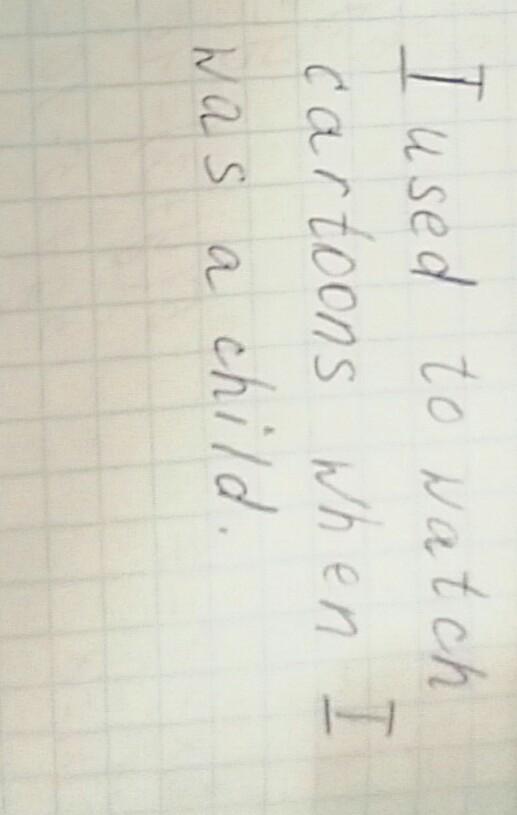 I used to watch
cartoons when I
was a child.